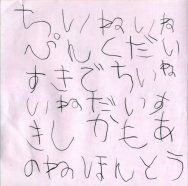 ちいねいね
ぴんくだい
すきでちいね
いねだいす
きしかもあ
のねほんとう